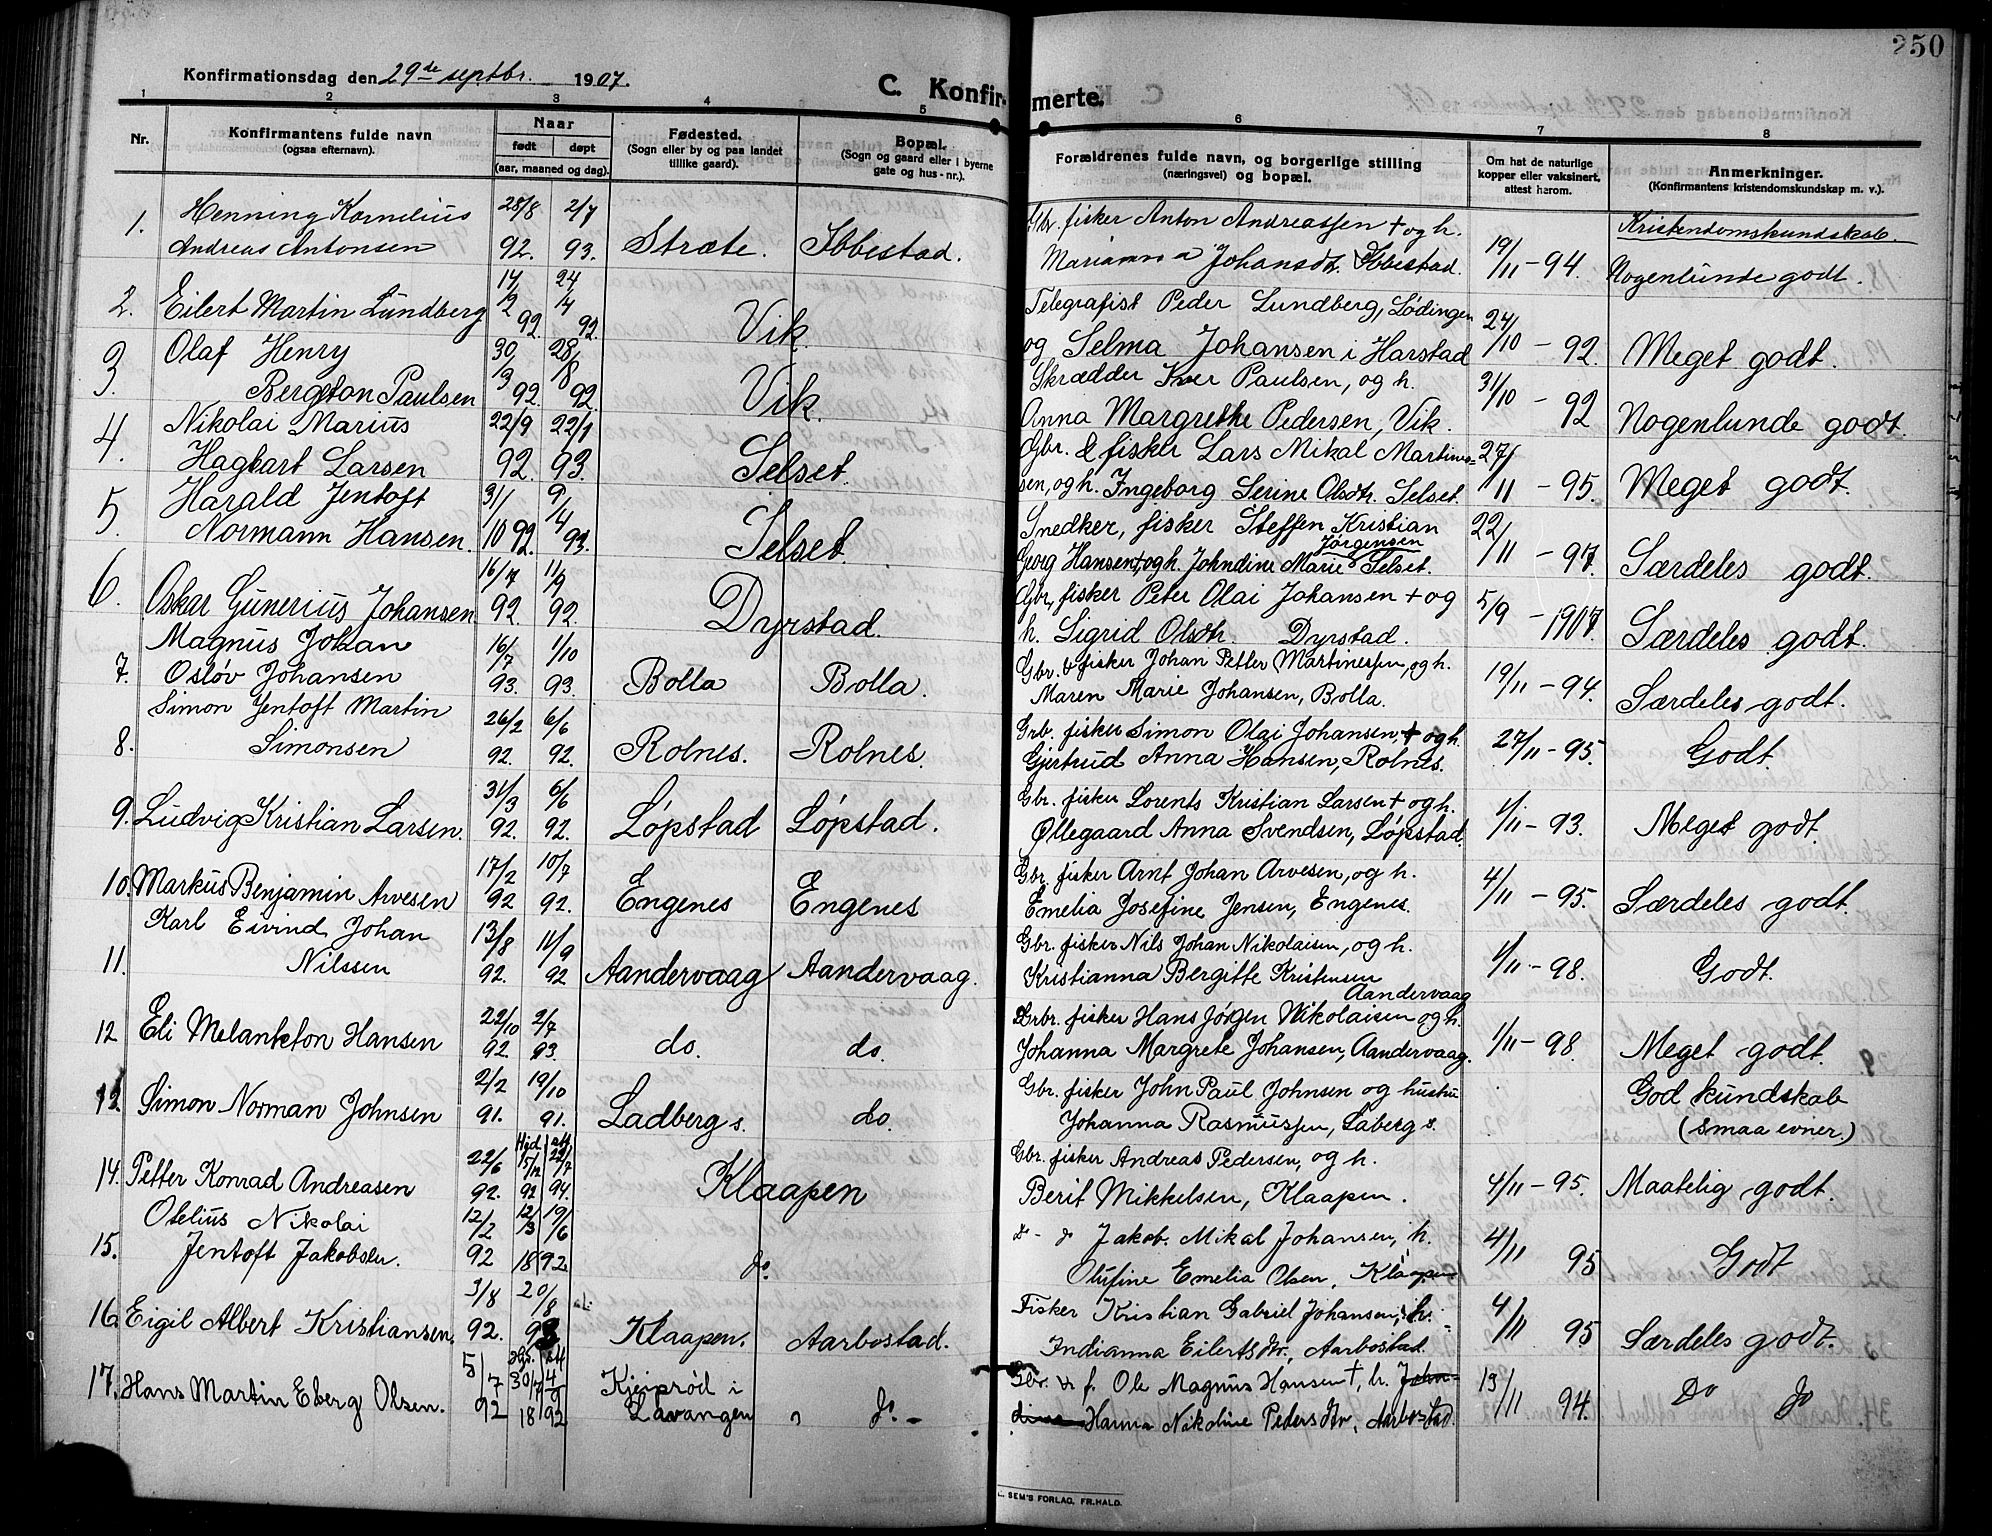 250
Konfirmationsdag den 29de septbr. 1907.
C. Konfirmerte.
1 2 3 4 5 6 7 8
Nr.
Konfirmantens fulde navn
(ogsaa efternavn).
Naar
født døpt
(aar, maaned og dag).
Fødested.
(Sogn eller by og paa landet
tillike gaard).
Bopæl.
(Sogn og gaard eller i byerne
gate og hus-nr.).
Forældrenes fulde navn, og borgerlige stilling
(næringsvei) og bopæl.
Om hat de naturlige
kopper eller vaksinert,
attest herom.
Anmerkninger.
(Konfirmantens kristendomskundskap m. v.).
Kristendomskundskab.
1. Henning Kornelius 28/8 2/7 Gbr. fisker Anton Andreassen + og h.
Andreas Antonsen 92. 93. Stræte. Ibbestad. Johansdt. Ibbestad. 19/11 - 94. Nogenlunde godt.
2. Eilert Martin Lundberg 14/2 92. 24/4 92. Vik. Telegrafist Peder Lundberg, Lødingen
og Selma Johansen i Harstad 24/10 - 92. Meget godt.
3. Olaf Henry 30/3 28/8 Skrædder Iver Paulsen, og h.
Bergton Paulsen 92. 92. Vik. Anna Margrethe Pedersen, Vik. 31/10 - 92 Nogenlunde godt.
4. Nikolai Marius 22/9 22/1 Gbr. & fisker Lars Mikal Martins=
Hagbart Larsen 92. 93. Selset. sen, og h. Ingeborg Serine Olsdtr. Selset. 27/11 - 95. Meget godt.
5. Harald Jentoft 31/10 9/4 Snedker, fisker Steffen Kristian
Normann Hansen. 92. 93. Selset. Georg Hansen + og h. Johndine Marie Jørgensen Selset. 22/11 - 97. Særdeles godt.
6. Oskar Gunerius Johansen 16/7 92. 11/9 92. Dyrstad. Gbr, fisker Peter Olai Johansen + og
h. Sigrid Olsdtr. Dyrstad. 5/9 - 1907. Særdeles godt.
7. Magnus Johan 16/7 1/10 Gbr. & fisker Johan Petter Martinessen, og h.
Osløv Johansen 93. 93. Bolla Bolla. Maren Marie Johansen, Bolla. 19/11 - 94. Særdeles godt.
8. Simon Jentoft Martin 26/2 6/6 Grb. fisker Simon Olai Johansen, + og h.
Simonsen 92. 92. Rolnes. Rolnes. Gjertrud Anna Hansen, Rolnes. 27/11 - 95. Godt.
9. Ludvig Kristian Larsen. 31/3 92. 6/6 92. Løpstad Løpstad. Gbr. fisker Lorents Kristian Larsen + og h.
Ollegaard Anna Svendsen, Løpstad. 4/11 - 93. Meget godt.
10. Markus Benjamin Arvesen 17/2 92 10/7 92. Engenes Engenes Gbr. fisker Arnt Johan Arvesen, og h.
Emelia Josefine Jensen, Engenes. 4/11 - 95. Særdeles godt.
11. Karl Eivind Johan 13/8 11/9 Gbr. fisker Nils Johan Nikolaisen, og h.
Nilssen 92. 92 Aandervaag Aandervaag. Kristianna Bergitte Kristensen
Aandervaag 4/11 - 98. Godt.
12 Eli Melankton Hansen 22/10 92 2/7 93. do. do. Grbr. fisker Hans Jørgen Nikolaisen og h.
Johanna Margrete Johansen, Aandervaag. 1/11 - 98. Meget godt.
13 Simon Norman Johnsen 2/2 91. 19/10 91. Ladberg s. do. Gbr. fisker John Paul Johnsen og hustru
Johanna Rasmussen, Laberg s. God kundskab
(smaa evner.)
14. Petter Konrad Andreasen 22/6 92. Hjd. 15/12 92 att. 22/7 94. Klaapen Gbr. fisker Andreas Pedersen, og h.
Berit Mikkelsen, Klaapen. 4/11 - 95. Maatelig godt.
15. Otelius Nikolai 12/2 12/3 19/6 Jakob. Mikal Johansen, h.
Jentoft Jakobsen. 92 1892. do. Olufine Emelia Olsen, Klaapen 4/11 95 Godt
16. Eigil Albert Kristiansen. 3/8 92. 20/8 Klaapen. Aarbostad. Fisker Kristian Gabriel Johansen, h.
Indianna Eilertsdtr, Aarbostad. 4/11 95 Særdeles godt.
17. Hans Martin Eberg Olsen. 5/7 92 30/7 4/9 1892 Kjeiprød i
Lavangen do. Gbr. & f. Ole Magnus Hansen +, h. John-
dine Hanna Nikoline Pedersdtr, Aarbostad. 13/11 94. Do do
SEM'S FORLAG, FR.HALD.